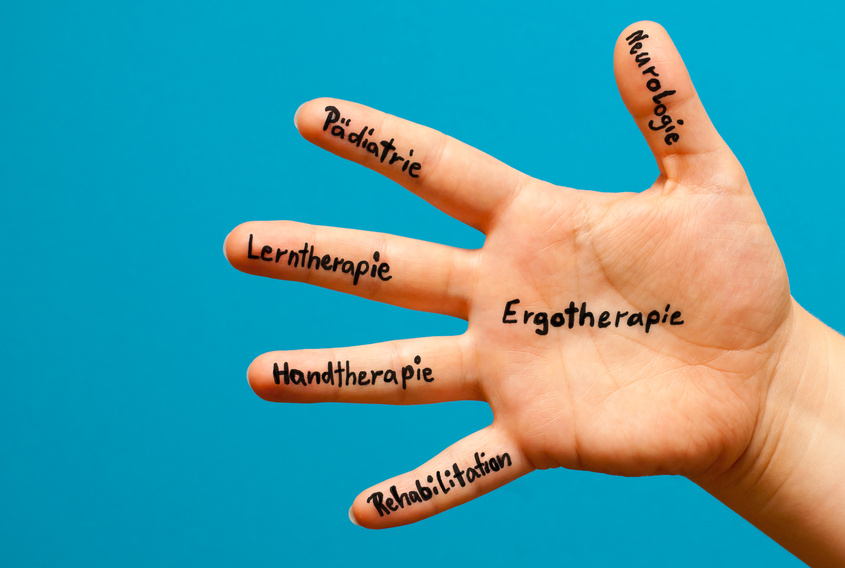 Neurologie
Pädiatrie
Lerntherapie
Ergotherapie
Handtherapie
Rehabilitation